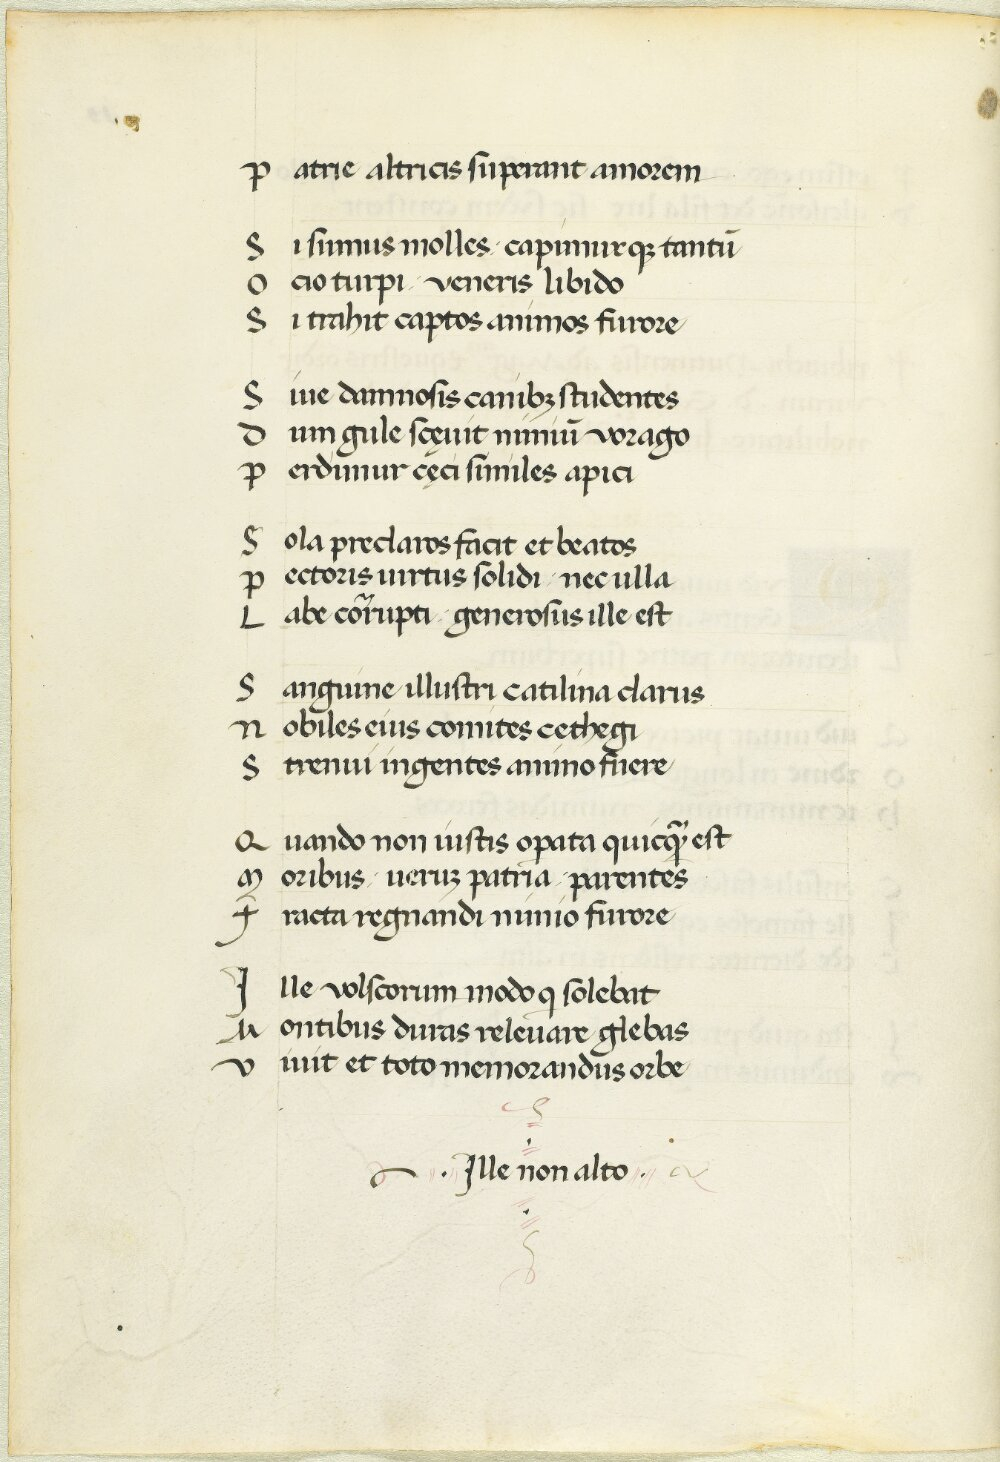 Patrie altricis superant amorem
Si sumus molles · capimurqꝫ tantū
Ocio turpi · veneris libido
Si trahit captos animos furore
Siue damnosis canibꝫ studentes
Dum gule scęuit nimiū vorago
Perdimur cęci similes apici
Sola preclaros facit et beatos
Pectoris uirtus solidi · nec ulla
Labe corrupti · generosus ille est
Sanguine illustri catilina clarus
Nobiles eius comites cethegi
Strenui ingentes animo fuere
Quando non iustis opata quicq̃ est
Moribus · ueruꝫ patria parentes
Fracta regnandi nimio furore
Ille volscorum modo q solebat
Montibus duras releuare glebas
Viuit et toto memorandus orbe
· Ille non alto ·